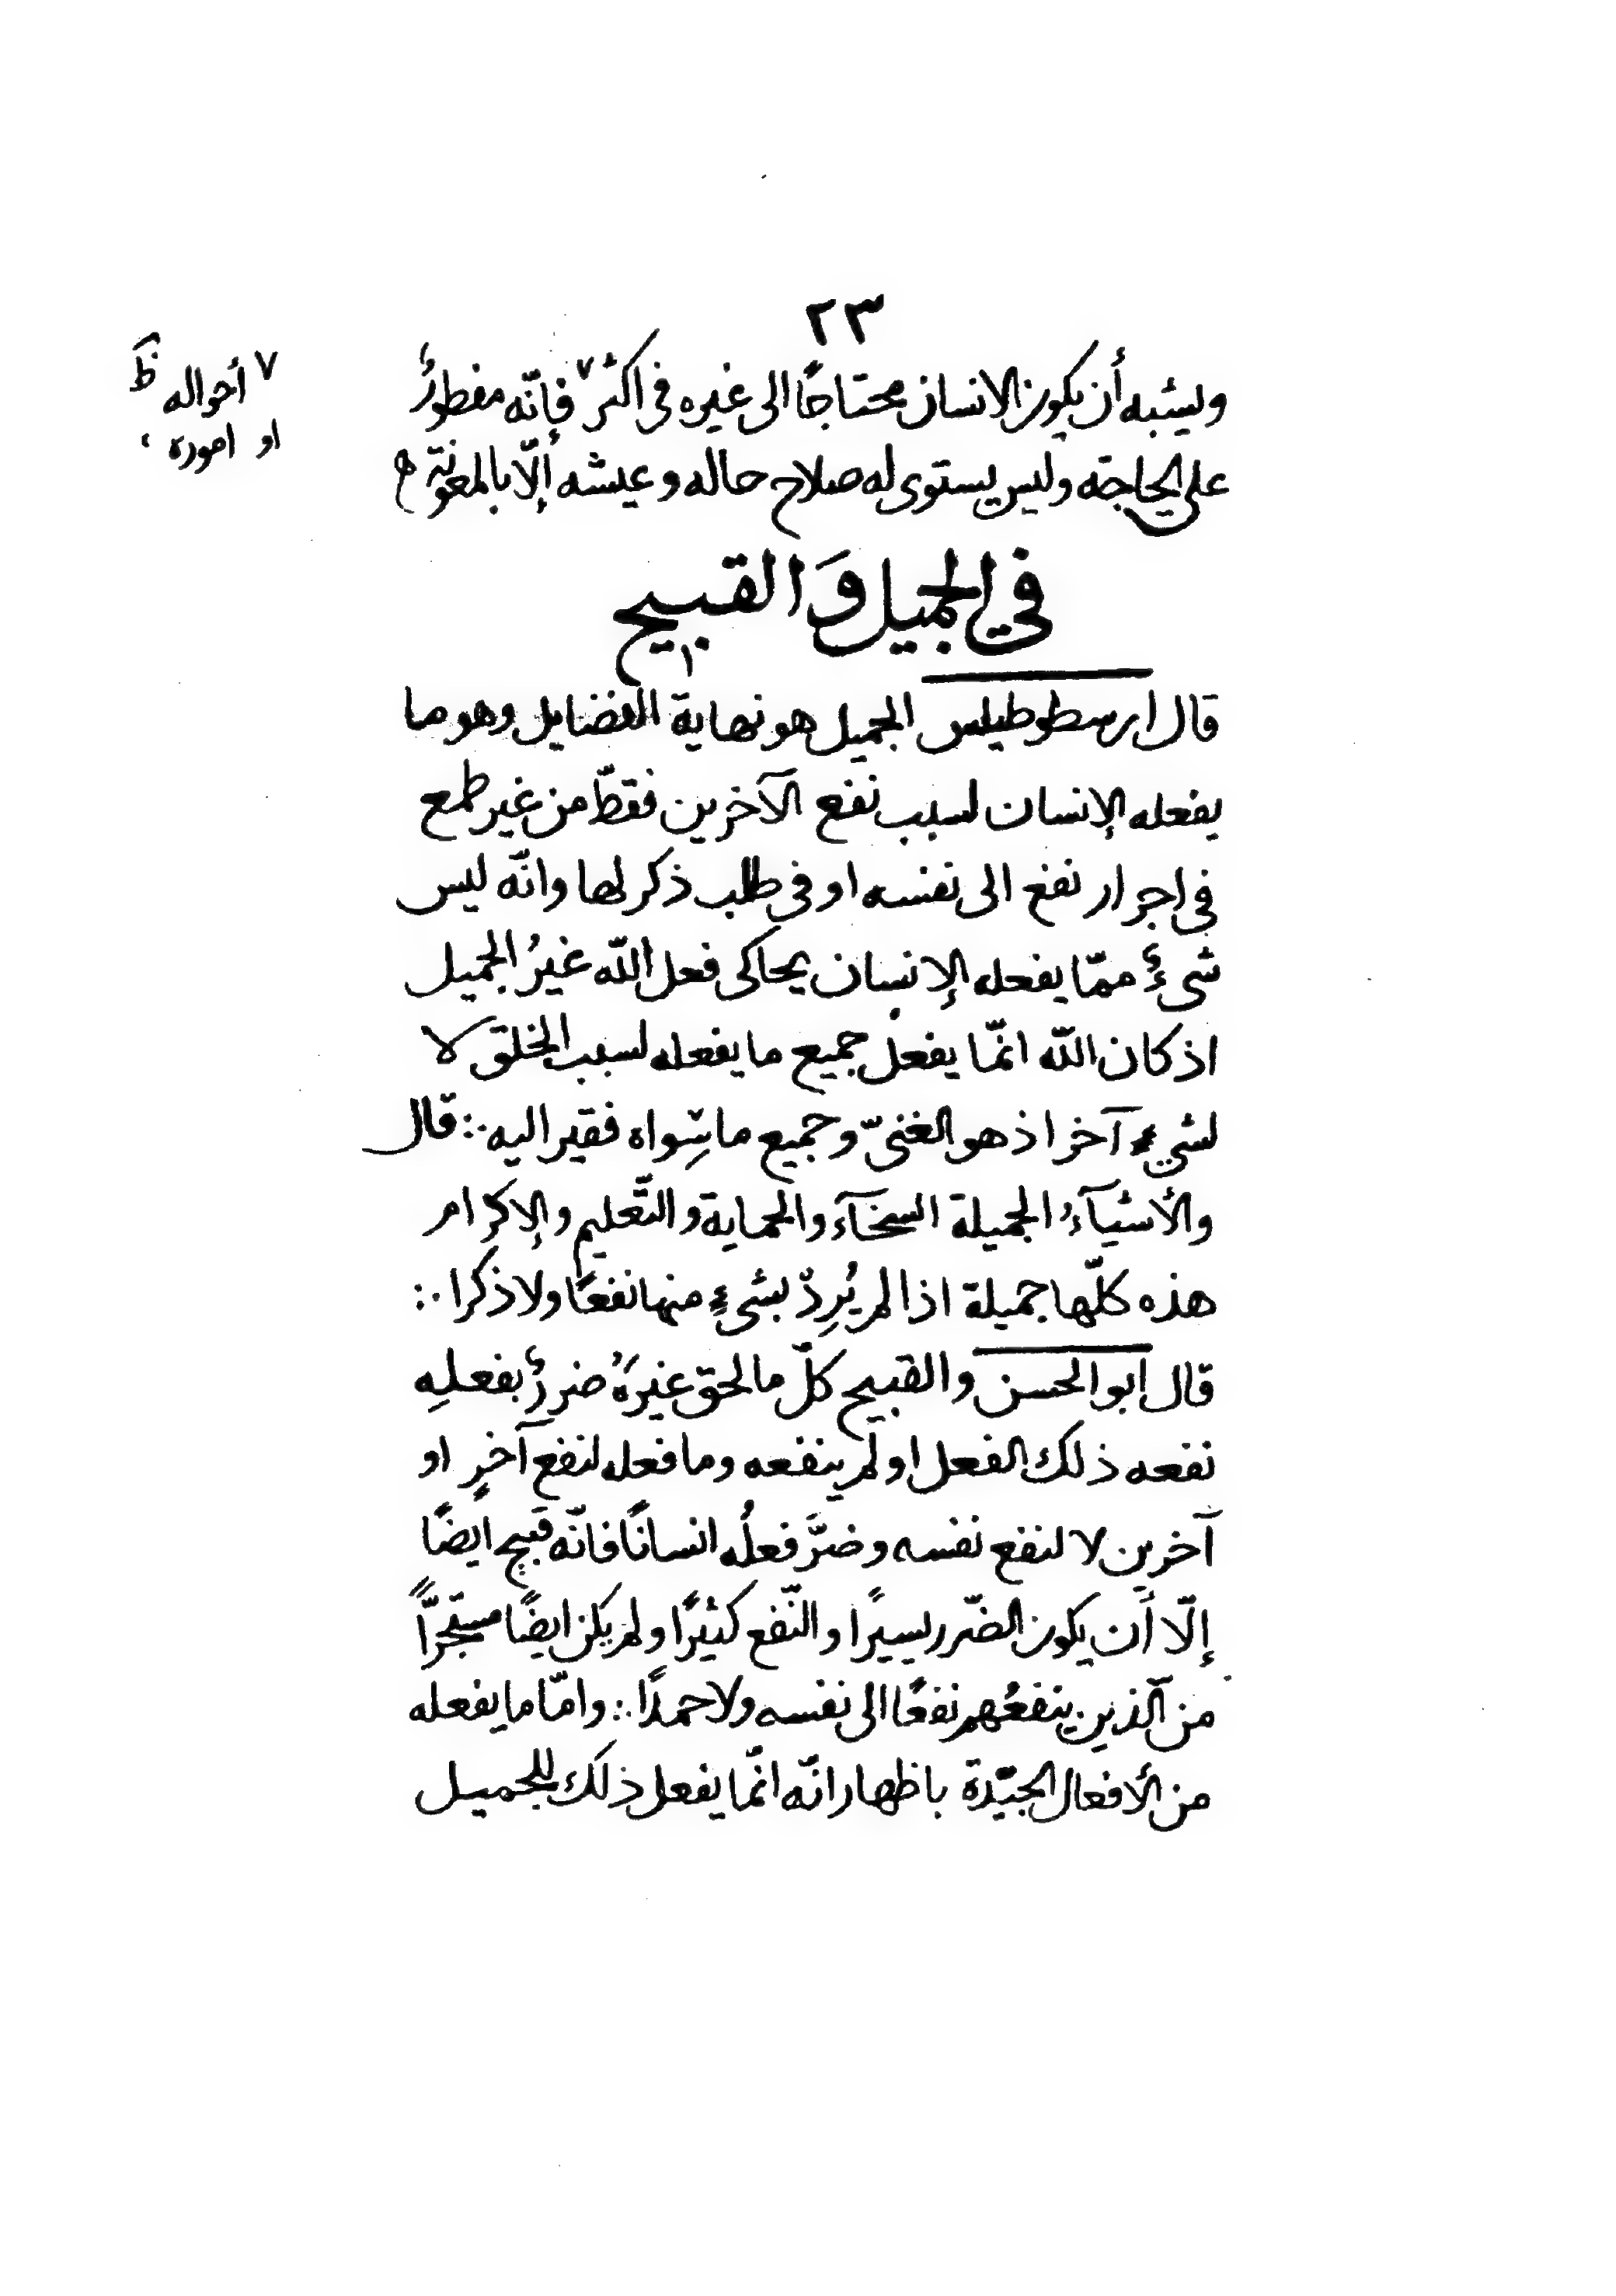 ٢٣
ويشبه أن يكون الانسان محتاجًا الى غيره فى اكثر ٧ فإنّه مفطورٌ
٧ أحواله ظ
او اموره
على الحاجة وليس يستوى له صلاح حاله وعيشه إلّا بالمعونة
في الجميل وَالقبيح
قال ارسطوطيلس الجميل هو نهاية الفضايل وهو ما
يفعله الإنسان لسبب نفع الآخرين فقط من غير طمع
فى اجرار نفع الى نفسه او فى طلب ذكر لها وانّه ليس
شىءٌ ممّا يفعله الإنسان يحاكى فعل اللّه غيرُ الجميل
اذ كان اللّه انّما يفعل جميع ما يفعله لسبب الخلق لا
لشيءٍ آخر اذ هو الغنىّ وجميع ما سِواه فقير اليه ∴ قال
والأشيآءُ الجميلة السخآء والحماية والتّعليم والإكرام
هذه كلّها جميلة اذا لم يُرِدْ بشىءٍ منها نفعًا ولا ذكرا ∴
قال ابو الحسن والقبيح كلّ ما لحق غيرَهُ ضررٌ بفعلِهِ
نفعه ذلك الفعل او لم ينفعه وما فعله لنفع آخرٍ او
آخرين لا لنفع نفسه وضرَّ فعلُه انسانًا فانّه قبيح ايضًا
إلّا أن يكون الضّرر يسيرًا والنّفع كثيرًا ولم يكن ايضًا مستجرًّا
من الّذين ينفعُهم نفعًا الى نفسه ولا حمدًا ∴ وامّا ما يفعله
من الأفعال الجيّدة باظهار انّه انّما يفعل ذلك للجميل